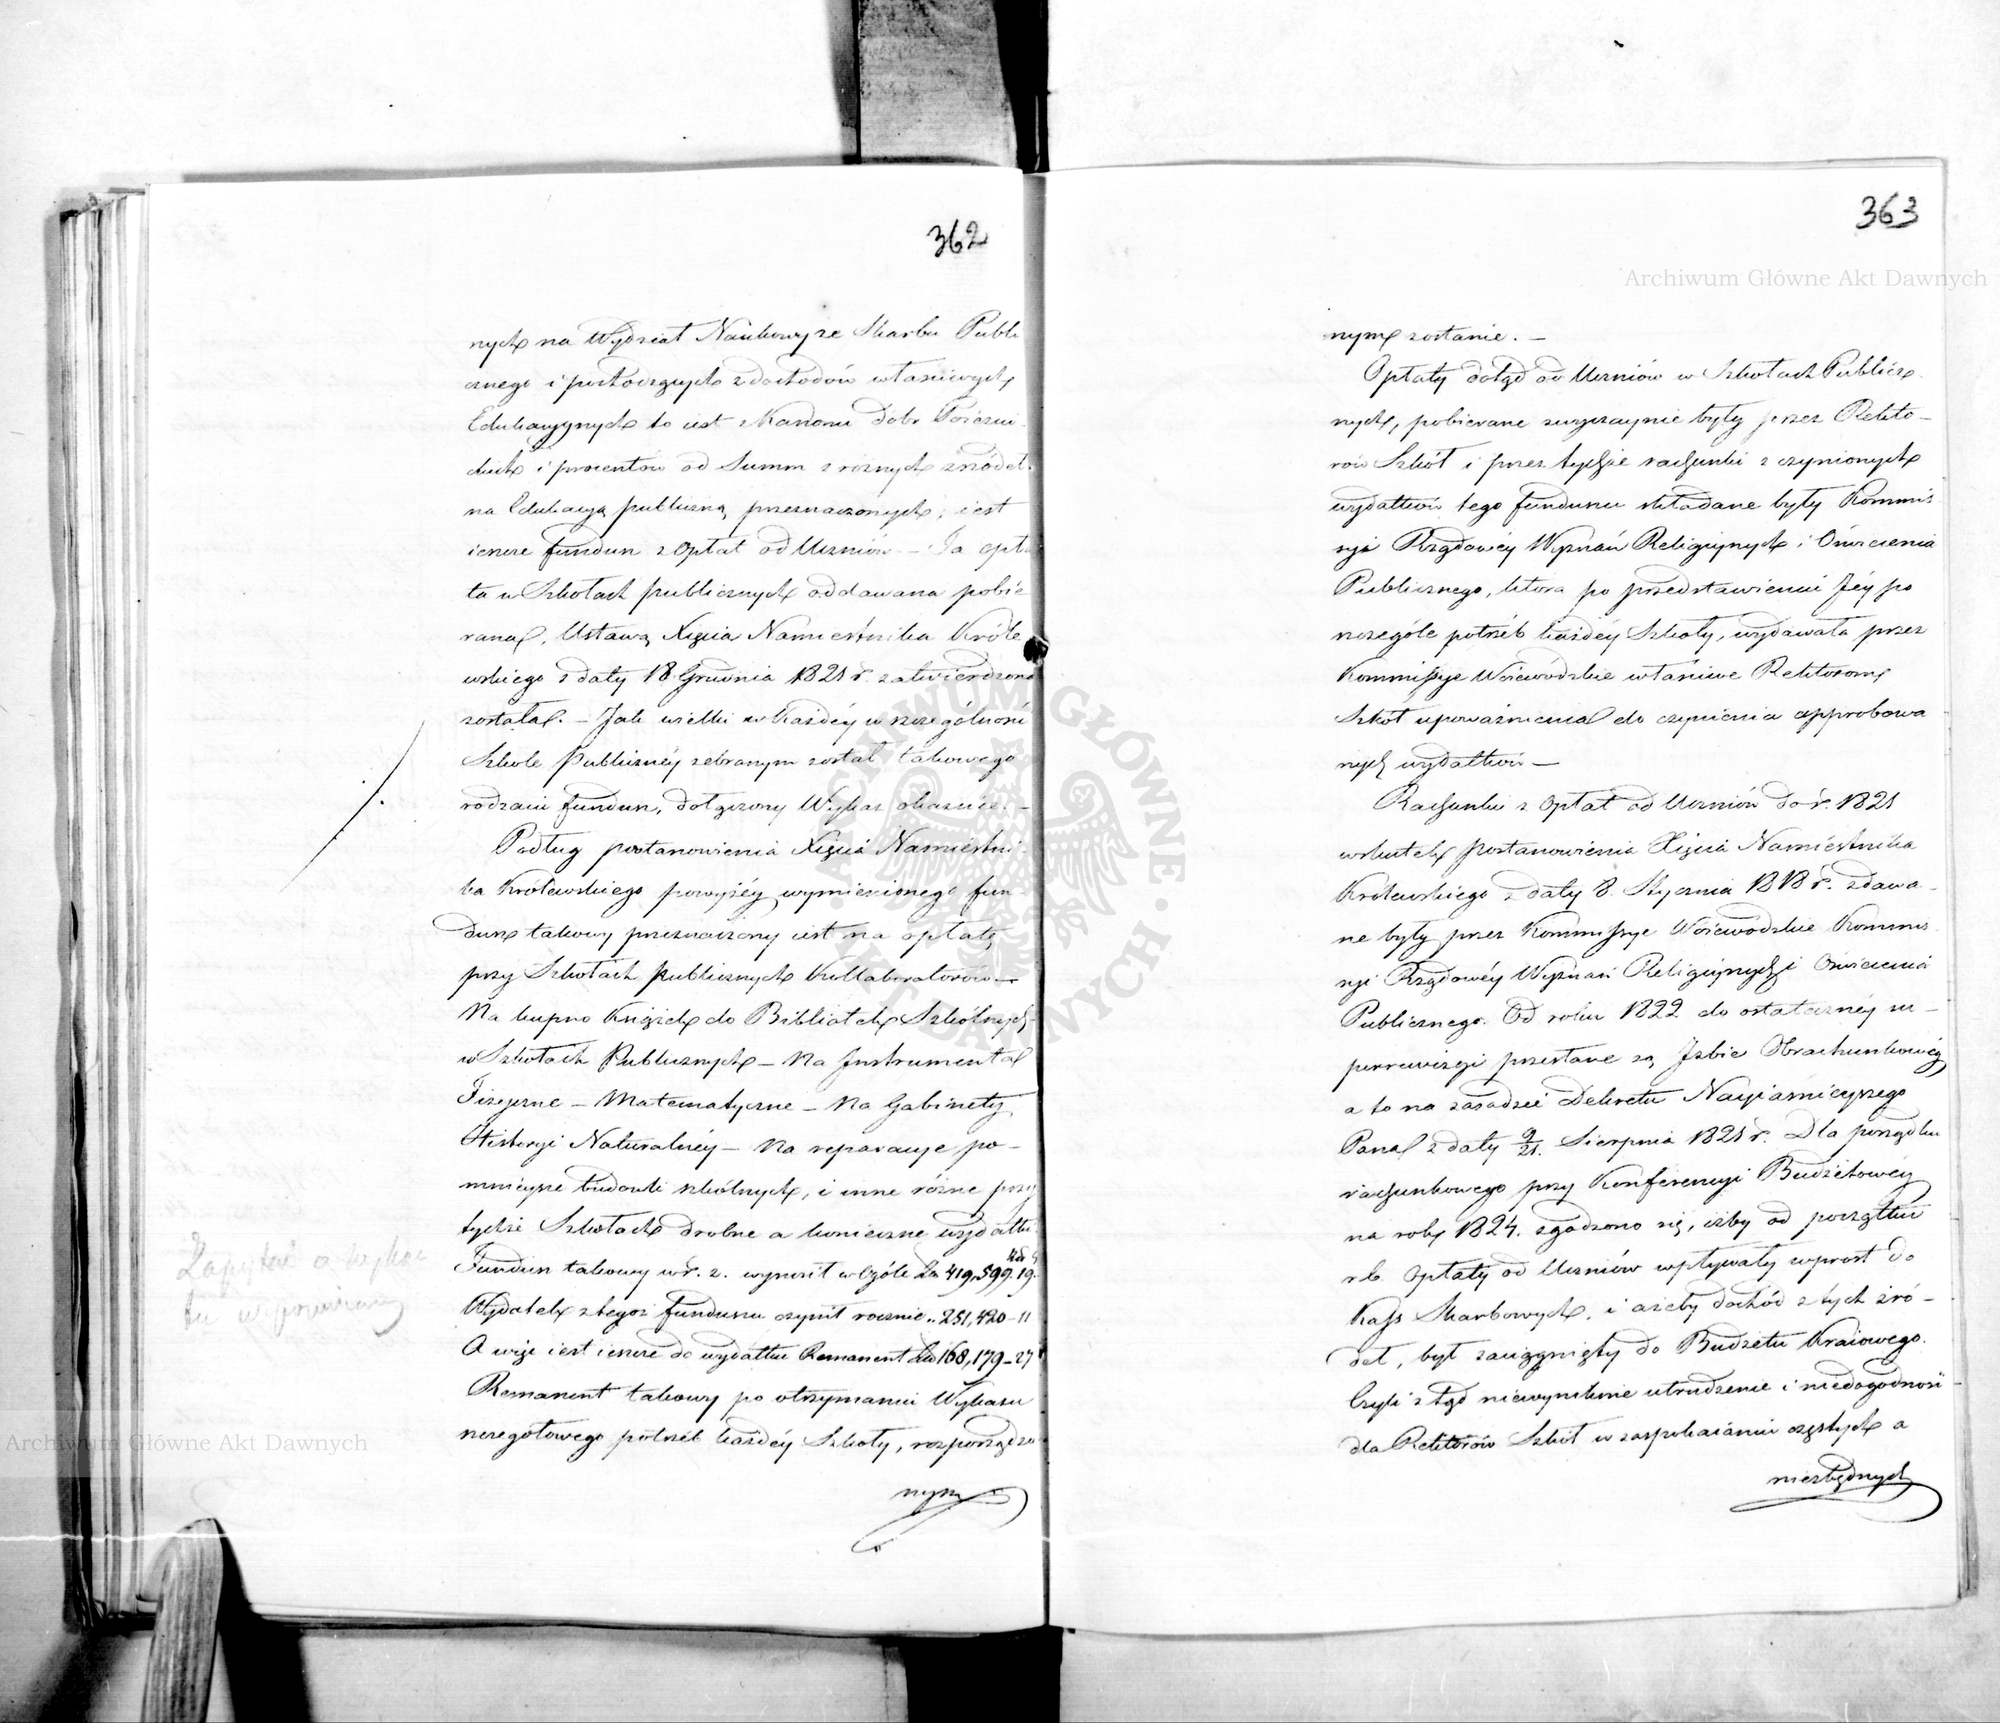 362
nych na Wydział Naukowy ze Skarbu Publi
cznego i pochodzących z dochodów właściwych
Edukacyjnych to iest z Kanonu dóbr Poiezui
ckich i procentów od Summ z róznych zrzódeł
na Edukacyą publiczną przeznaczonych, iest
ieszcze fundusz z Opłat od Uczniów. – Ta opła
ta w Szkołach publicznych oddawana pobie
rana, Ustawą Xięcia Namiestnika Króle
wskiego z daty 18 Grudnia 1821 r. zatwierdzoną
została. – Jak wielki w każdéy w szczególności
Szkole Publicznéy zebranym został takowego
rodzaiu fundusz, dołączony Wykaz okazuie. –
Podług postanowienia Xięcia Namiestni
ka Królewskiego powyżéy wymienionego fun
dusz takowy przeznaczony iest na opłatę
przy Szkołach publicznych Kollaboratorów. –
Na kupno Książek do Bibliotek Szkólnych
w Szkołach Publicznych – Na Instrumenta
Fizyczne – Matematyczne – Na Gabinety
Historyi Naturalnéy – Na reparacye po-
mnieysze budowli szkólnych, i inne różne przy
tychże Szkołach drobne a konieczne wydatki.
Fundusz takowy w r. z. wynosił w Ogóle Zł 419,599. 19.
Wydatek z tegoż funduszu czynił rocznie „ 251,420 – 11
A więc iest ieszcze do wydatku Remanent Zł 168,179 – 27
Remanent takowy po otrzymaniu Wykazu
szczegółowego potrzeb każdéy Szkoły, rozporządzo
nym
Zapytać o wykaz
tu wspomniany
363
nym zostanie. –
Opłaty dotąd od Uczniów w Szkołach Publicz
nych, pobierane zwyczaynie były przez Rekto-
rów Szkół i przez tychże rachunki z czynionych
wydatków tego funduszu składane były Kommis
syi Rządowéy Wyznań Religiynych i Oświecenia
Publicznego, która po przedstawieniu Jéy po
szczególe potrzeb każdéy Szkoły, wydawała przez
Kommissye Woiewódzkie właściwe Rektorom
Szkół upoważnienia do czynienia approbowa
nych wydatków –
Rachunki z Opłat od Uczniów do r. 1821
wskutek postanowienia Xięcia Namiestnika
Królewskiego z daty 8. Stycznia 1818 r. zdawa-
ne były przez Kommissye Woiewódzkie Kommis
syi Rządowéy Wyznań Religiynych i Oświecenia
Publicznego. Od roku 1822 do ostatecznéy su-
perrewizyi przesłane są Izbie Obrachunkowéy
a to na zasadzie Dekretu Nayiaśnieyszego
Pana z daty 9/21. Sierpnia 1821 r. Dla porządku
rachunkowego przy Konferencyi Budżetowéy
na rok 1824. zgodzono się, iżby od początku
r.b. Opłaty od Uczniów wpływały wprost do
Kass Skarbowych, i ażeby dochód z tych źró-
deł, był zaciągnięty do Budżetu Kraiowego.
Czyli ztąd niewyniknie utrudzenie i niedogodność
dla Rektorów Szkół w zaspokaianiu częstych a
niezbędnych
Archiwum Główne Akt Dawnych
Archiwum Główne Akt Dawnych
ARCHIWUM GŁÓWNE AKT DAWNYCH